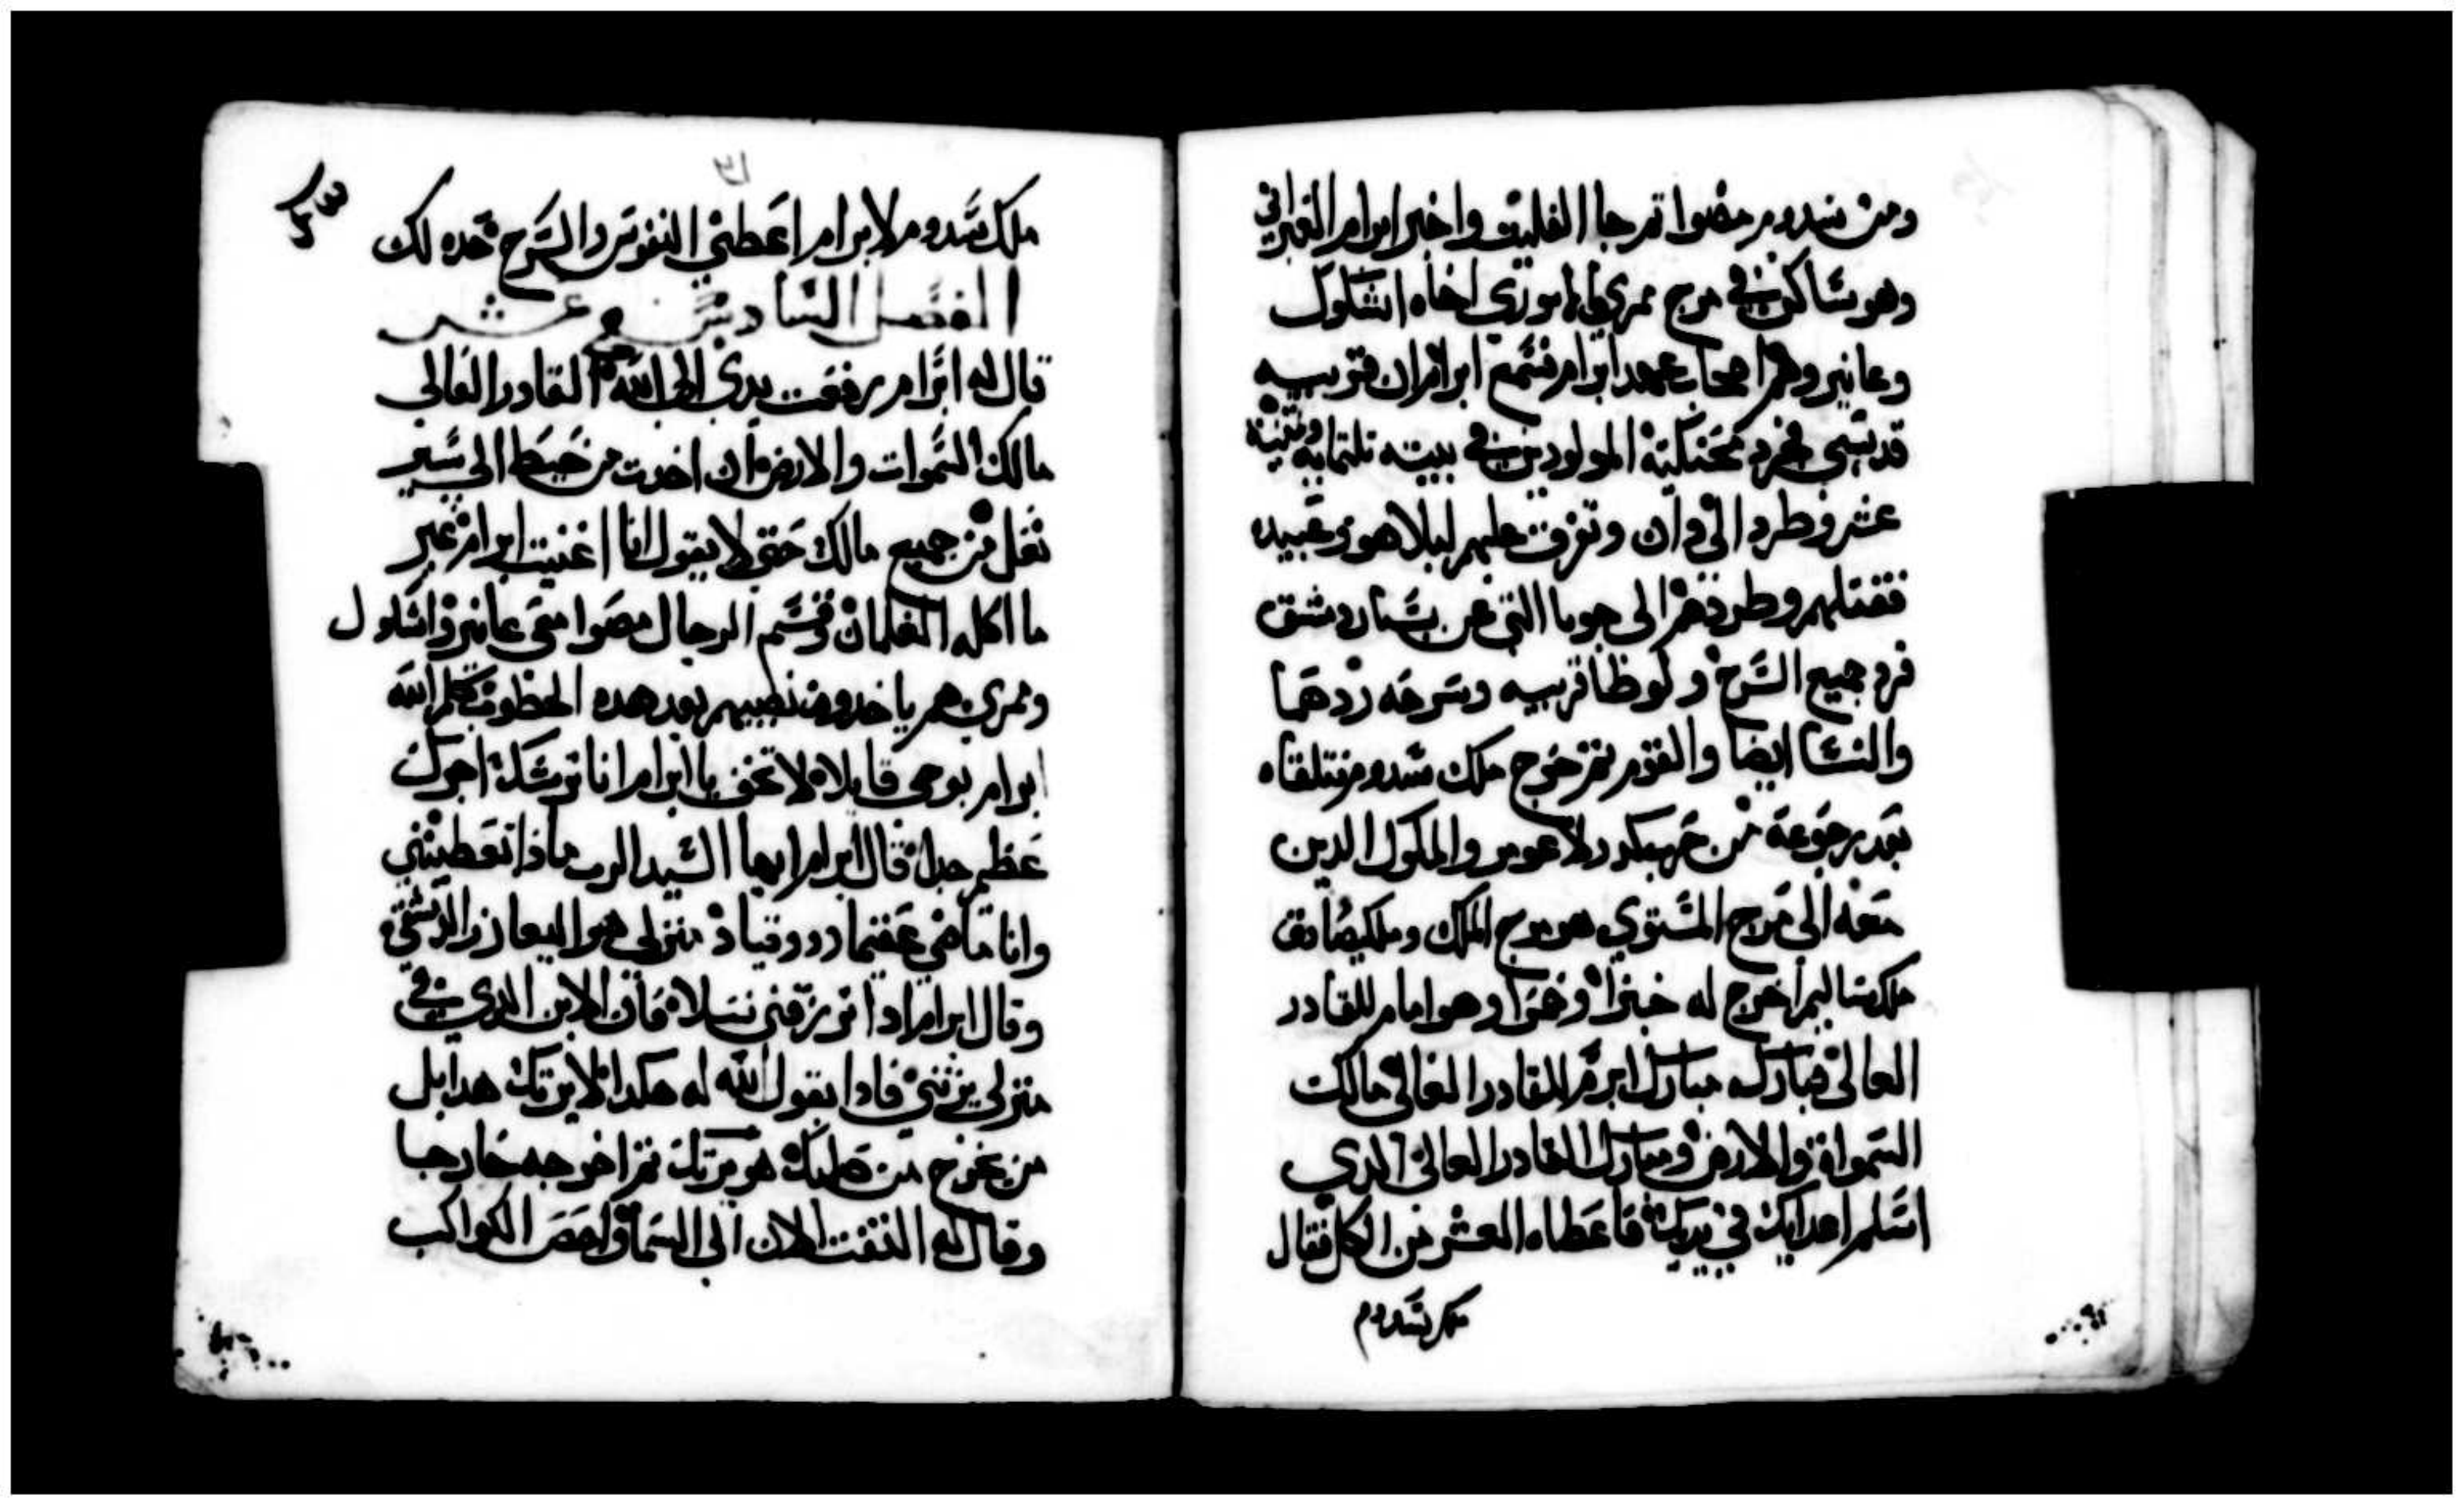 ومن سدوم مضوا تم جا الفليت واخبر ابرام العبراني
وهو ساكن في مرج ممري الاموري اخاه اشكول
وعانير وهم اصحاب عهد ابرام فسمع ابرام ان قريبه
قد سبي فجرد محنكيه المولودين في بيته تلتمايه وتمنية
عشر وطرد الي دان وتفرق عليهم ليلا هو وعبيده
فقتلهم وطردهم الى جوبا التي عن يسار دمشق
فرد جميع السرح ولوطا قريبه وسرحه ردهما
والنسا ايضا والقوم تم خرج ملك سدوم فتلقاه
بعد رجوعه من كدرلاعومر والملوك الدين
معه الي مرج المستوي هو مرج الملك وملكيصادق
ملك ساليم اخرج له خبزا وخمرا وهو امام للقادر
العالي فباركه مبارك ابرم للقادر العالي مالك
السموات والارض ومبارك القادر العالي الدي
اسلم اعدايك في يديك فاعطاه العشر من الكل فقال
ملك سدوم
ملك سدوم لابرام اعطني النفوس والسرح خده لك
الفصل السادس عشر
قال له ابرام رفعت يدي الى الله القادر العالي
مالك السموات والارض ان اخدت من خيط الي سير
نعل من جميع مالك حتي لا يقول انا اغنيت ابرام غير
ما اكله الغلمان وقسم الرجال مضوا معي عانير واشكول
وممري هم ياخدون نصيبهم بعد هده الخطوب كلم الله
ابرام بوحي قايلا لا تخف يا ابرام انا ترسك اجرك
عظيم جدا قال ابرام ايها السيد الرب ماذا تعطيني
وانا ماضي عقيما دو وقياد منزلي هو اليعازر الدمشقي
وقال ابرام ادا لم ترزقني نسلا فان الابن الدي في
منزلي يرثني فادا بقول الله له هكدا لا يرتك هدا بل
من يخرج من صلبك هو يرتك تم اخرجه خارجا
وقال له التفت الان الي السما واحص الكواكب